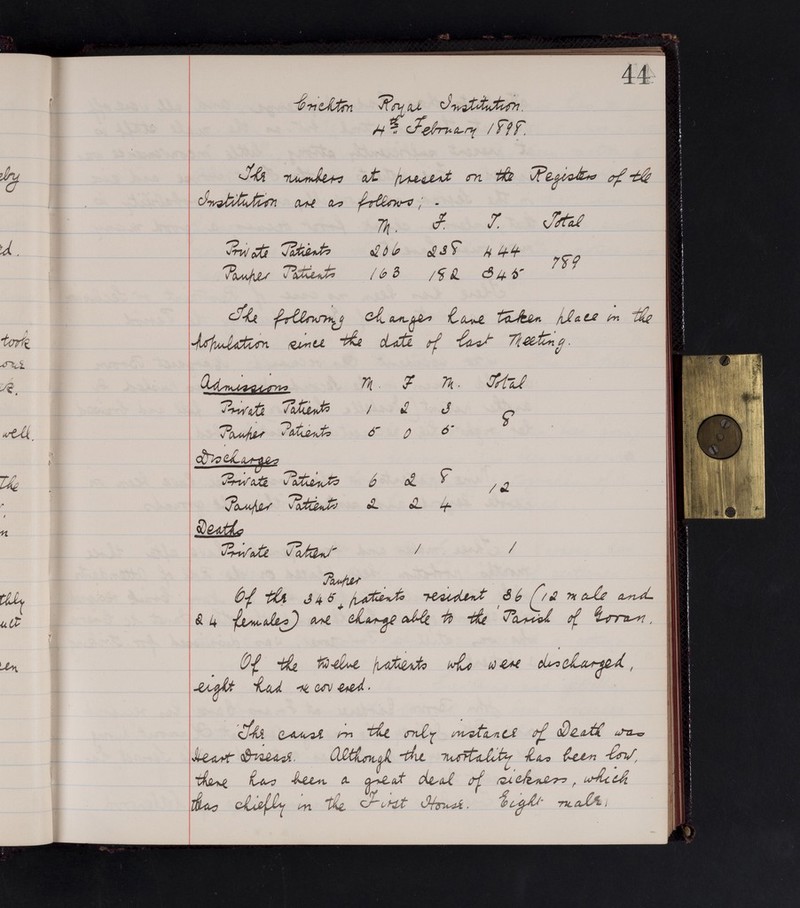 44
Crichton Royal Institution.
4th February 1898.
The numbers at present on the Registers of the
Institution are as follows; -
M. F. T. Total
Private Patients 206 238 444
789
Pauper Patients 163 182 345
The following changes have taken place in the
population since the date of last Meeting.
Admissions M. F M. Total
Private Patients 1 2 3
8
Pauper Patients 5 0 5
Discharges
Private Patients 6 2 8
12
Pauper Patients 2 2 4
Deaths
Private Patient 1 1
Pauper
Of the 345 patients resident, 36 (12 male and
24 females) are chargeable to the Parish of Govan.
Of the twelve patients who were discharged,
eight had recovered.
The cause in the only instance of Death was
Heart Disease. Although the mortality has been low,
there has been a great deal of sickness, which
was chiefly in the First House. Eight male,
eby
ed.
took
well.
The
n
thly
uct
een